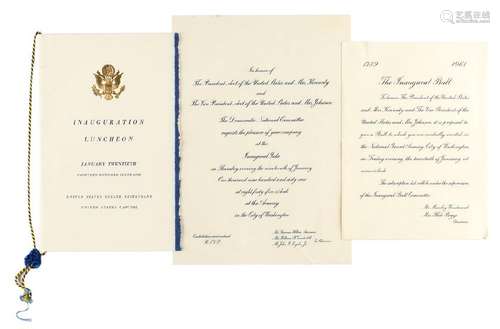 INAUGURATION
LUNCHEON
JANUARY TWENTIETH
NINETEEN HUNDRED SIXTY-ONE
UNITED STATES
UNITED STATES CAPITOL
In honor of
The President-elect of the United States and Mrs. Kennedy
and
The Vice President-elect of the United States and Mrs. Johnson
The Democratic National Committee
requests the pleasure of your company
at the
Inaugural Gala
on Thursday evening the nineteenth of January
One thousand nine hundred and sixty-one
at eight forty-five o'clock
at the Armory
in the City of Washington
R.S.V.P.
1789 1961
The Inaugural Ball
To honor The President of the United States
and Mrs. Kennedy and The Vice President of the
United States and Mrs. Johnson it is proposed to
give a Ball to which you are cordially invited in the
National Guard Armory City of Washington
on Friday evening the twentieth of January at
nine o'clock
The subscription list will be under the supervision
of the Inaugural Ball Committee
Mrs. Hale Boggs